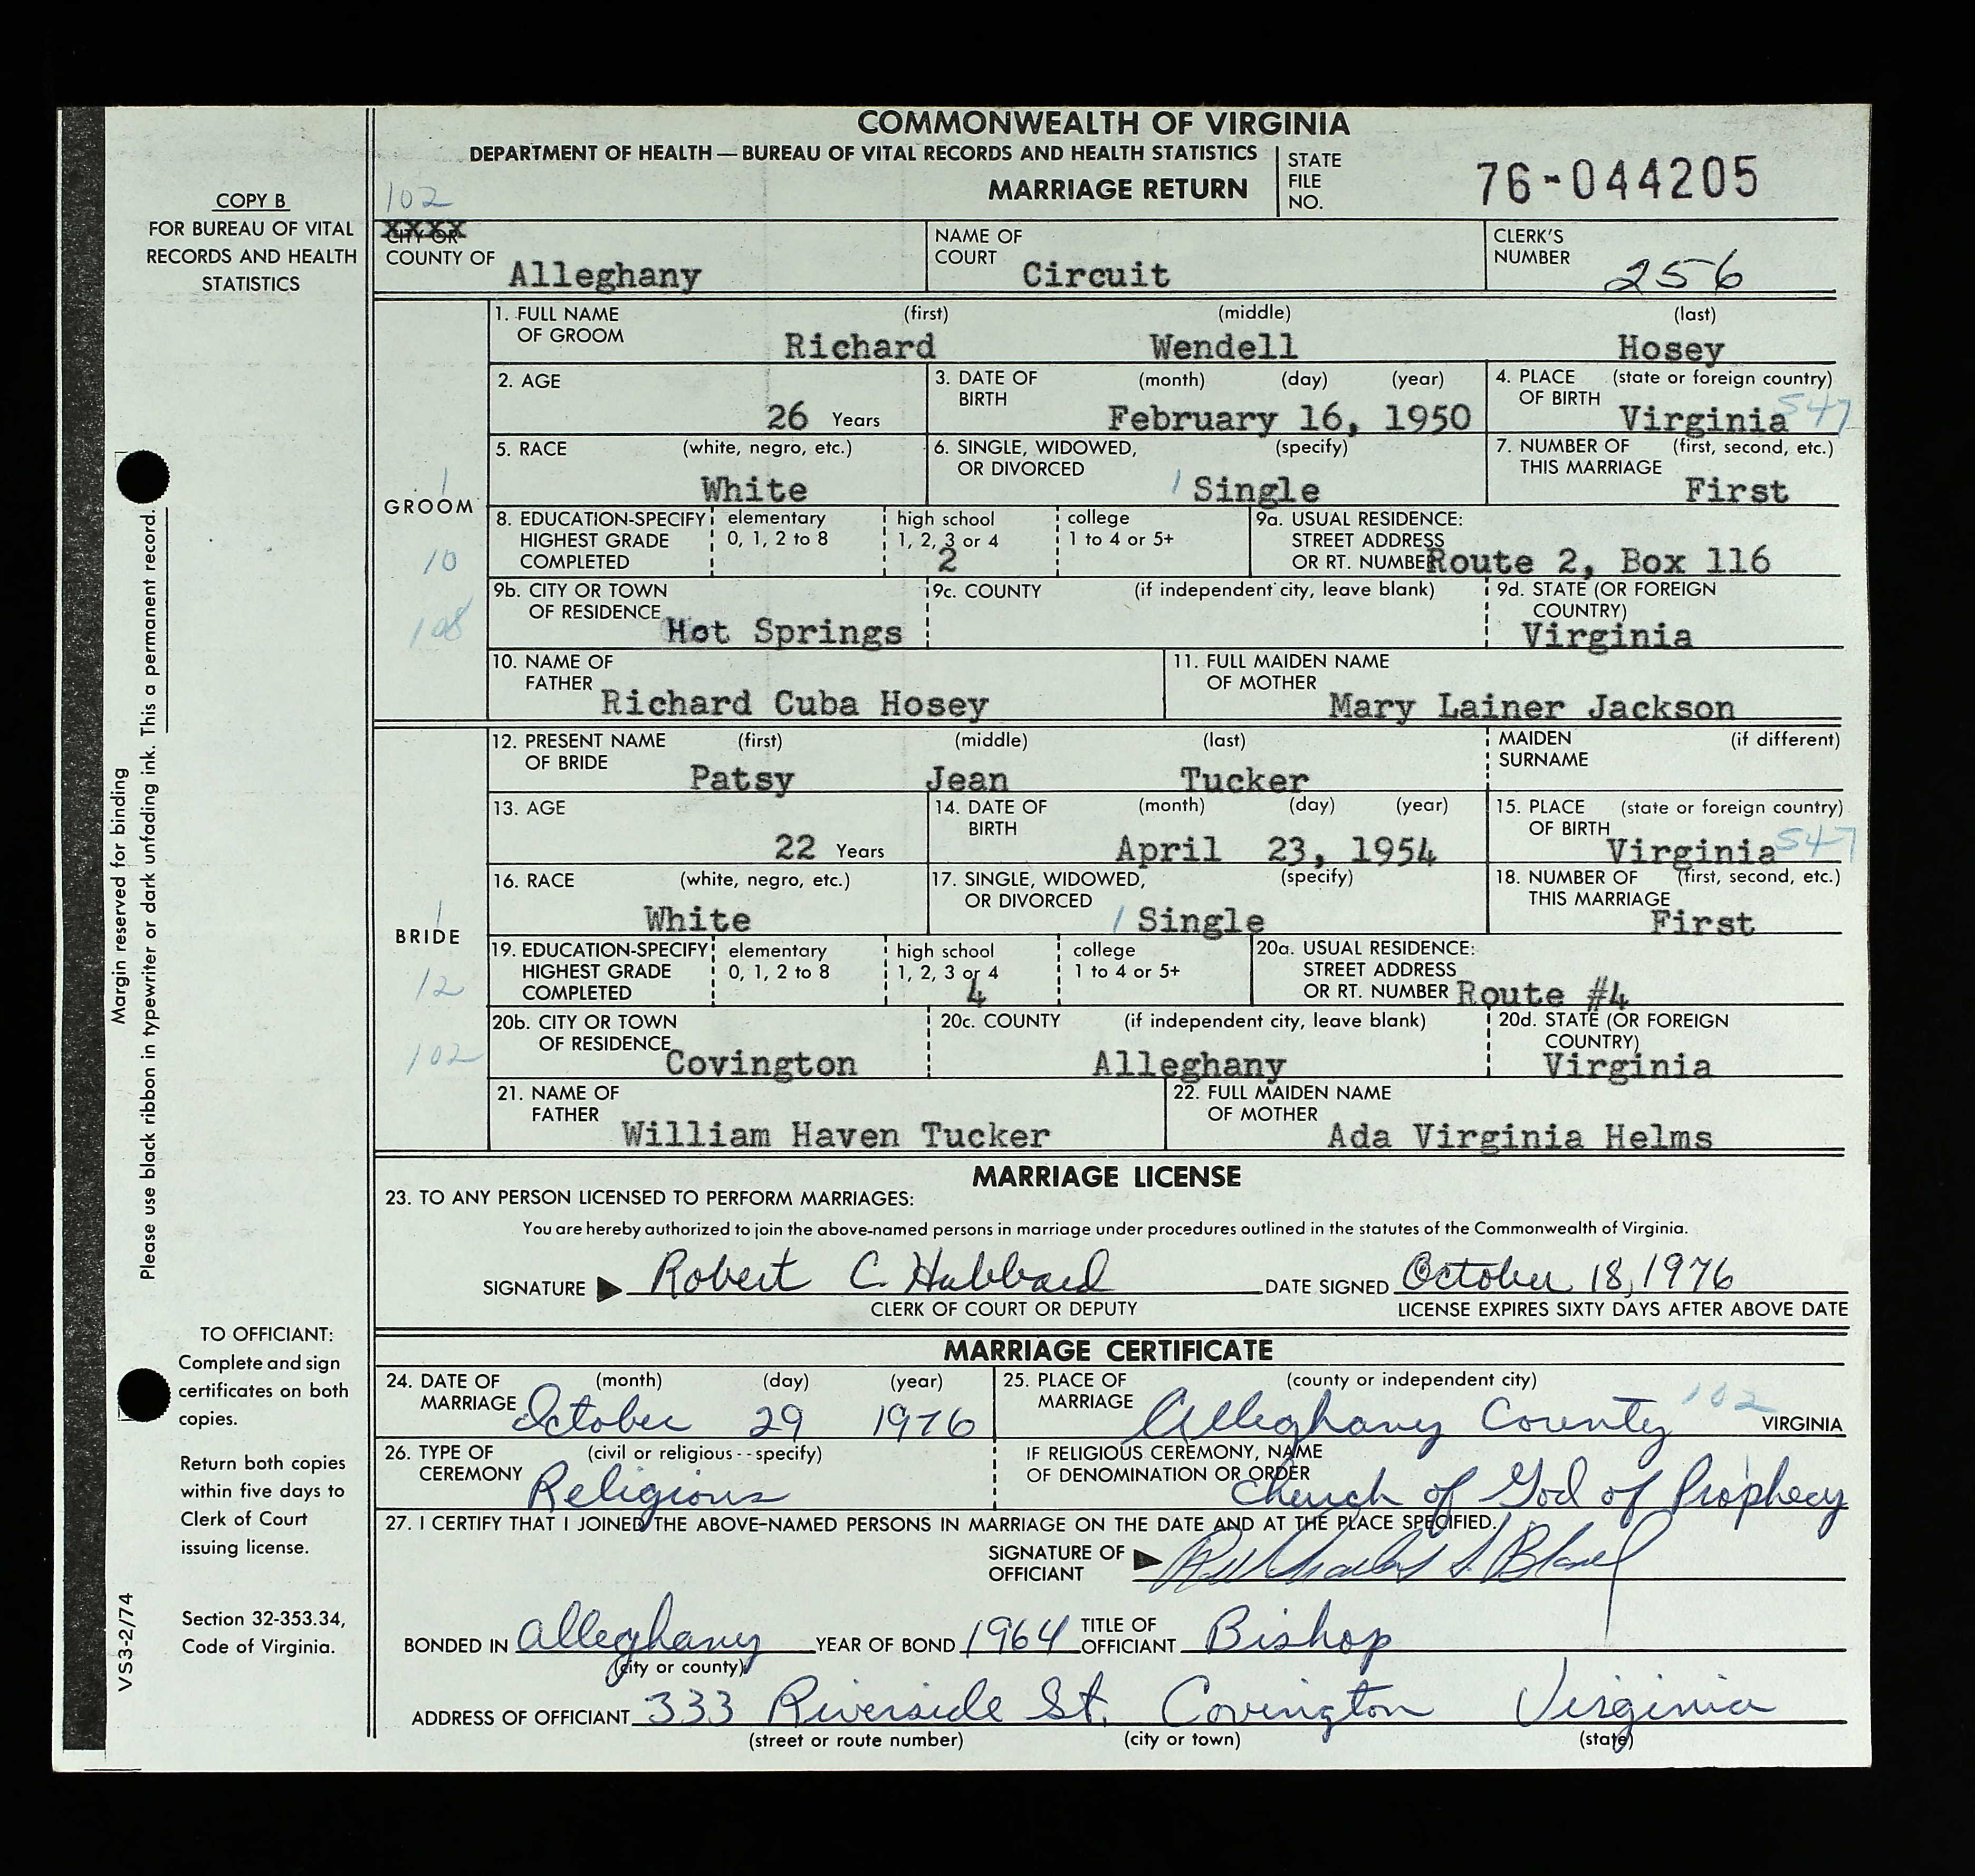 COMMONWEALTH OF VIRGINIA
DEPARTMENT OF HEALTH — BUREAU OF VITAL RECORDS AND HEALTH STATISTICS
MARRIAGE RETURN
STATE FILE NO. 76-044205
COPY B
FOR BUREAU OF VITAL
RECORDS AND HEALTH
STATISTICS
102
XXXX
CITY OR
COUNTY OF Alleghany
NAME OF COURT Circuit
CLERK'S NUMBER 256
GROOM
1
10
108
1. FULL NAME OF GROOM (first) Richard (middle) Wendell (last) Hosey
2. AGE 26 Years
3. DATE OF BIRTH (month) (day) (year) February 16, 1950
4. PLACE OF BIRTH (state or foreign country) Virginia 547
5. RACE (white, negro, etc.) White
6. SINGLE, WIDOWED, OR DIVORCED (specify) 1 Single
7. NUMBER OF THIS MARRIAGE (first, second, etc.) First
8. EDUCATION-SPECIFY HIGHEST GRADE COMPLETED elementary 0, 1, 2 to 8 high school 1, 2, 3 or 4 2 college 1 to 4 or 5+
9a. USUAL RESIDENCE: STREET ADDRESS OR RT. NUMBER Route 2, Box 116
9b. CITY OR TOWN OF RESIDENCE Hot Springs
9c. COUNTY (if independent city, leave blank)
9d. STATE (OR FOREIGN COUNTRY) Virginia
10. NAME OF FATHER Richard Cuba Hosey
11. FULL MAIDEN NAME OF MOTHER Mary Lainer Jackson
BRIDE
1
12
102
12. PRESENT NAME OF BRIDE (first) Patsy (middle) Jean (last) Tucker
MAIDEN SURNAME (if different)
13. AGE 22 Years
14. DATE OF BIRTH (month) (day) (year) April 23, 1954
15. PLACE OF BIRTH (state or foreign country) Virginia 547
16. RACE (white, negro, etc.) White
17. SINGLE, WIDOWED, OR DIVORCED (specify) 1 Single
18. NUMBER OF THIS MARRIAGE (first, second, etc.) First
19. EDUCATION-SPECIFY HIGHEST GRADE COMPLETED elementary 0, 1, 2 to 8 high school 1, 2, 3 or 4 4 college 1 to 4 or 5+
20a. USUAL RESIDENCE: STREET ADDRESS OR RT. NUMBER Route #4
20b. CITY OR TOWN OF RESIDENCE Covington
20c. COUNTY (if independent city, leave blank) Alleghany
20d. STATE (OR FOREIGN COUNTRY) Virginia
21. NAME OF FATHER William Haven Tucker
22. FULL MAIDEN NAME OF MOTHER Ada Virginia Helms
MARRIAGE LICENSE
23. TO ANY PERSON LICENSED TO PERFORM MARRIAGES:
You are hereby authorized to join the above-named persons in marriage under procedures outlined in the statutes of the Commonwealth of Virginia.
SIGNATURE Robert C. Hubbard DATE SIGNED October 18, 1976
CLERK OF COURT OR DEPUTY LICENSE EXPIRES SIXTY DAYS AFTER ABOVE DATE
MARRIAGE CERTIFICATE
24. DATE OF MARRIAGE (month) (day) (year) October 29 1976
25. PLACE OF MARRIAGE (county or independent city) Alleghany County 102 VIRGINIA
26. TYPE OF CEREMONY (civil or religious--specify) Religious
IF RELIGIOUS CEREMONY, NAME OF DENOMINATION OR ORDER Church of God of Prophecy
27. I CERTIFY THAT I JOINED THE ABOVE-NAMED PERSONS IN MARRIAGE ON THE DATE AND AT THE PLACE SPECIFIED.
SIGNATURE OF OFFICIANT
BONDED IN Alleghany YEAR OF BOND 1964 TITLE OF OFFICIANT Bishop
(city or county)
ADDRESS OF OFFICIANT 333 Riverside St. Covington Virginia
(street or route number) (city or town) (state)
Margin reserved for binding
Please use black ribbon in typewriter or dark unfading ink. This a permanent record.
TO OFFICIANT:
Complete and sign
certificates on both
copies.
Return both copies
within five days to
Clerk of Court
issuing license.
Section 32-353.34,
Code of Virginia.
VS3-2/74